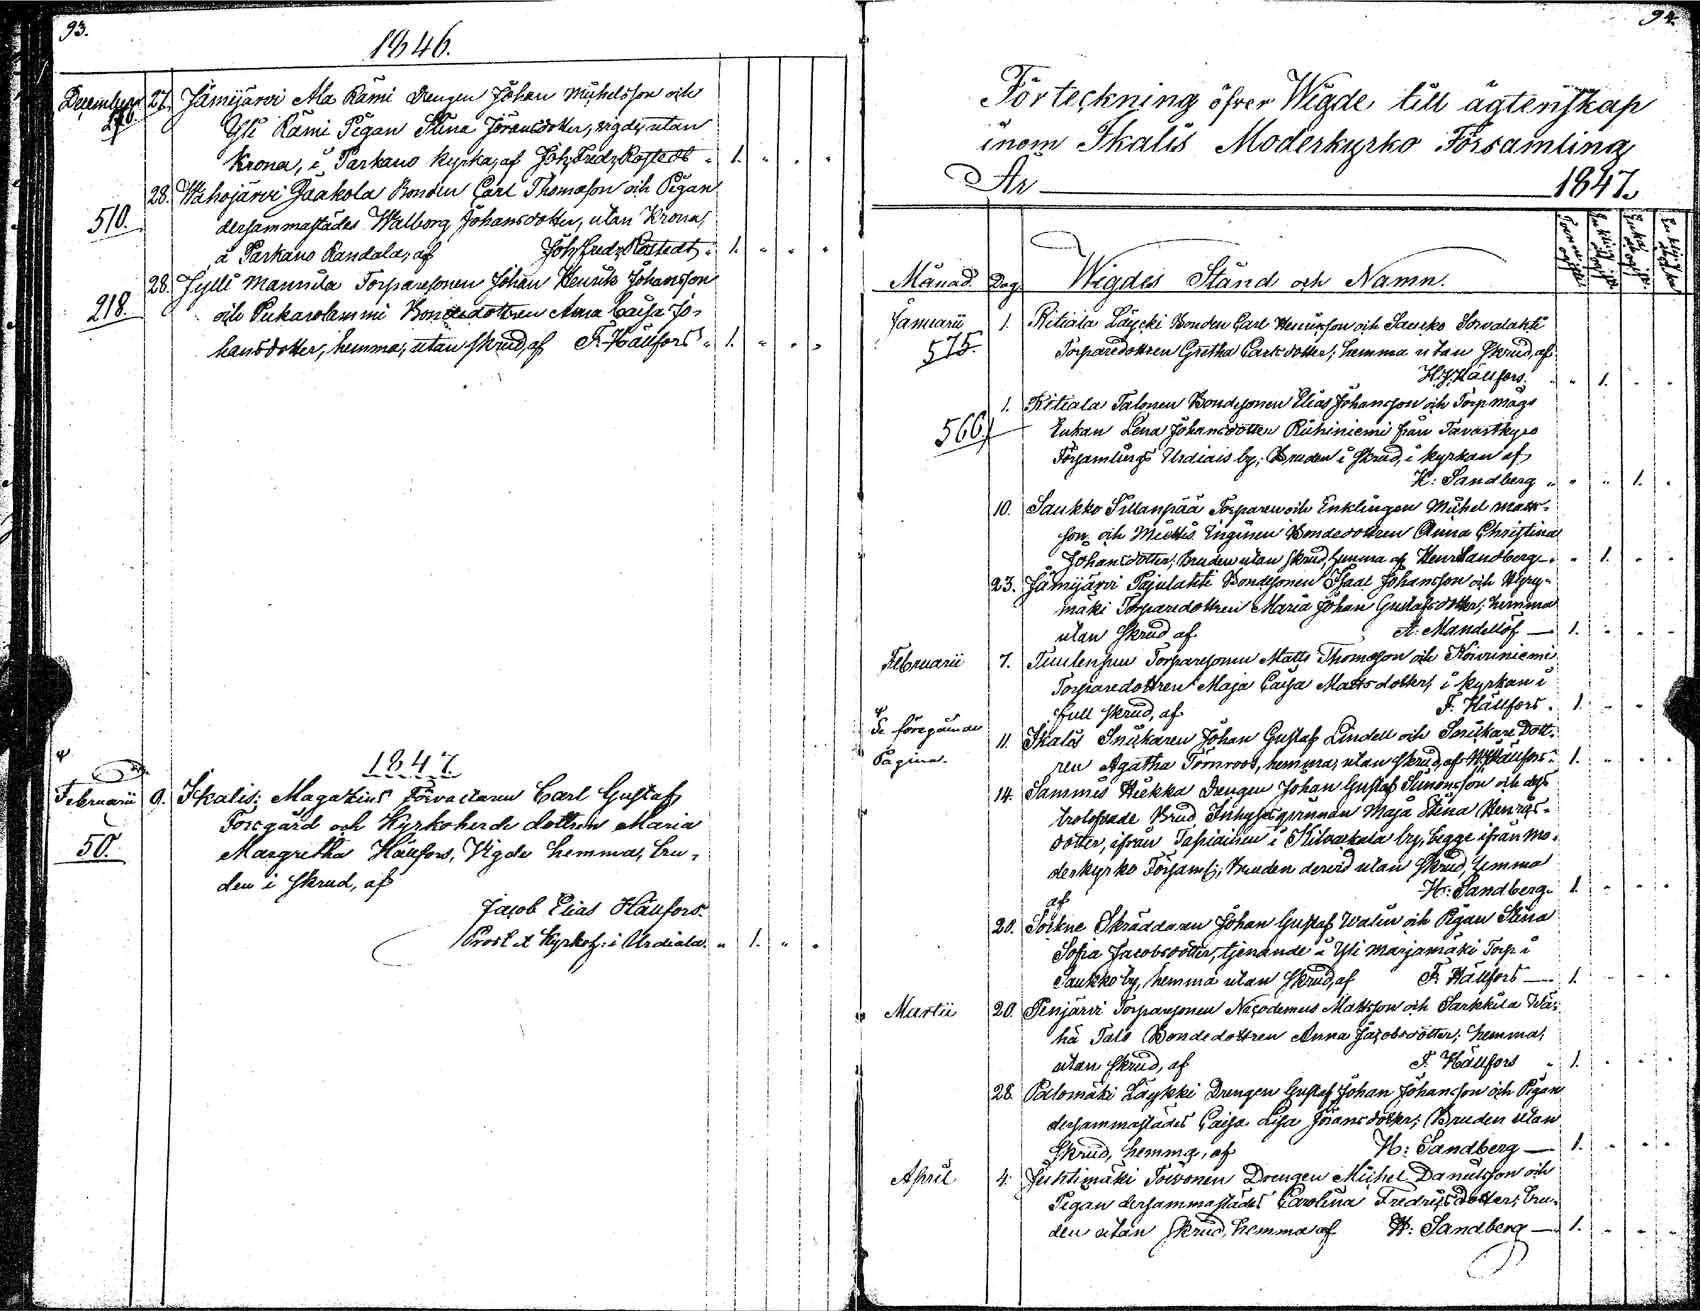 93.
1846.
December 27. Jämijärvi Ala Rämi Drengen Johan Michelsson och
Yli Rämi Pigan Stina Göransdotter, vigde utan
Krona, i Parkano Kyrka, af Joh. Fredr. Rostedt 1.
28. Wahojärvi Jaakola Bonden Carl Thomasson och Pigan
510.
dersammastädes Walborg Johansdotter, utan Krona,
å Parkano Kandala, af Joh. Fredr. Rostedt 1.
28. Jylli Mannila Torparesonen Johan Henrik Johansson
218.
och Pukarolammi Bondedottren Anna Caisa Jo-
hansdotter, hemma, utan skrud, af F. Hällfors 1.
1847
Februarii 9. Ikalis: Magazins Förvaltaren Carl Gustaf
Forsgård och Kyrkoherde dottren Maria
50.
Margretha Hällfors, Vigde hemma, Bru-
den i skrud, af
Jacob Elias Hällfors.
Prost et Kyrkoh: i Urdiala. 1.
94.
Förteckning öfver Wigde till ägtenskap
inom Ikalis Moderkyrko Församling
År 1847.
Månad. Dag Wigdes Stånd och Namn.
Januarii 1. Ritiala Läycki Bonden Carl Henriksson och Sauko
575.
Torparedottren Gretha Carlsdotter, hemma utan skrud, af
H. J. Hällfors. 1.
1. Ritiala Talonen Bondesonen Elias Johansson och Torp mågs
566
Enkan Lena Johansdotter Riihiniemi från Tavastkyro
Församlings Urdiais by; Bruden i skrud, i kyrkan af
H: Sandberg 1.
10. Saukko Sillanpää Torparen och Enklingen Michel Matts-
son och Miettis Bondedottren Anna Christina
Johansdotter, Bruden utan skrud, hemma af Henr Sandberg 1.
23. Jämijärvi Pajulahti Bondesonen Isaac Johansson och Myry-
mäki Torparedottren Maria Johan Gustafsdotter; hemma
utan skrud af A. Mandellöf 1.
Februarii 7. Tuulenpuu Torparesonen Matts Thomasson och Koivuniemi
Torparedottren Maja Caisa Mattsdotter, i kyrkan i
full skrud, af F. Hällfors. 1.
Se föregående
Pagina.
11. Ikalis Snickaren Johan Gustaf Lindell och Snickare Dott-
ren Agatha Törnroos, hemma, utan skrud, af Hällfors 1.
14. Sammis Heikka Drengen Johan Gustaf Simonsson och dess
trolofvade Brud Inhyses qvinnan Maja Stina Henrics-
dotter, ifrån Tapiainen i Kilvakala by, begge ifrån Mo-
derkyrko Församl; Bruden dervid utan skrud, hemma
af H: Sandberg 1.
20. Sockne Skräddaren Johan Gustaf Walin och Pigan Stina
Sofia Jacobsdotter, tjenande å Yli Marjamäki Torp i
Saukko by, hemma utan skrud, af F. Hällfors 1.
Martii 20. Penjärvi Torparesonen Nicodemus Mattsson och Sarkkila Wä-
hä Talo Bondedottren Anna Jacobsdotter; hemma,
utan skrud, af F. Hällfors 1.
28. Palomäki Läykki Drengen Gustaf Johan Johansson och Pigan
dersammastädes Caisa Lisa Göransdotter; Bruden utan
skrud, hemma, af H: Sandberg 1.
April 4. Juhtimäki Toivonen Drengen Michel Danielsson och
Pigan dersammastädes Carolina Fredricsdotter; Bru-
den utan skrud, hemma af H: Sandberg 1.